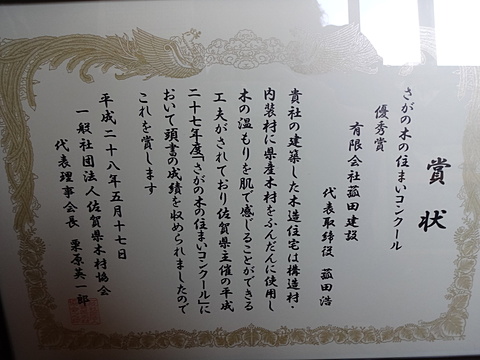 賞状
さがの木の住まいコンクール
優秀賞
有限会社菰田建設
代表取締役 菰田浩
貴社の建築した木造住宅は構造材・
内装材に県産木材をふんだんに使用し
木の温もりを肌で感じることができる
工夫がされており佐賀県主催の平成
二十七年度「さがの木の住まいコンクール」に
おいて頭書の成績を収められましたので
これを賞します
平成二十八年五月十七日
一般社団法人佐賀県木材協会
代表理事会長 栗原英一郎